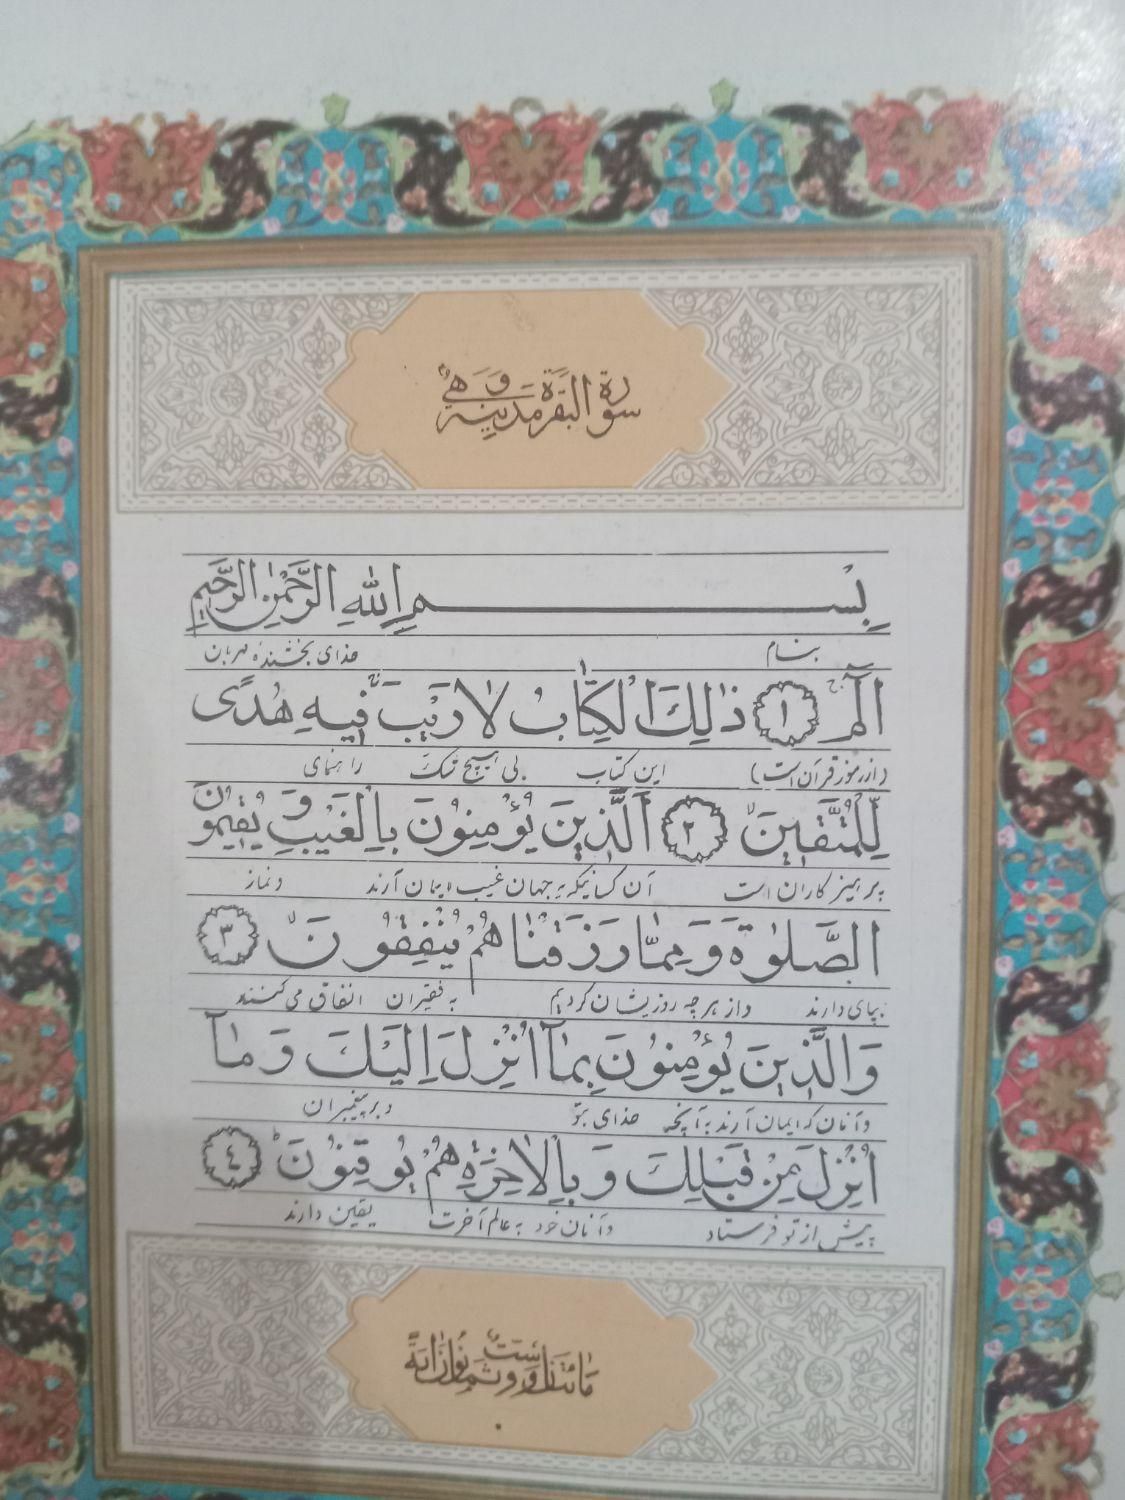 سورة البقرة مدنية وهي
بسم الله الرحمن الرحيم
بنام خدای بخشنده مهربان
الٓمٓ ١ ذٰلِكَ الْكِتَابُ لَا رَيْبَ فِيهِ هُدًى
(از رموز قرآن است) این کتاب بی هیچ شک راهنمای
لِلْمُتَّقِينَ ٢ اَلَّذِينَ يُؤْمِنُونَ بِالْغَيْبِ وَ يُقِيمُونَ
پرهیزکاران است آن کسانیکه بجهان غیب ایمان آرند و نماز
الصَّلٰوةَ وَ مِمَّا رَزَقْنَاهُمْ يُنْفِقُونَ ٣
بپای دارند و از هر چه روزیشان کردیم به فقیران انفاق می کنند
وَالَّذِينَ يُؤْمِنُونَ بِمَآ اُنْزِلَ اِلَيْكَ وَ مَآ
و آنان که ایمان آرند به آنچه خدای بتو و بر پیغمبران
اُنْزِلَ مِنْ قَبْلِكَ وَ بِالْاٰخِرَةِ هُمْ يُوقِنُونَ ٤
پیش از تو فرستاد و آنان خود به عالم آخرت یقین دارند
مائتان وست وثمانون آية